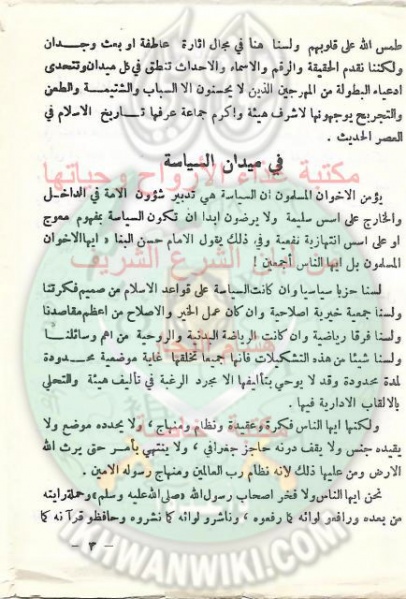 طمس الله على قلوبهم ولسنا هنا في مجال اثارة عاطفة او بعث وجدان
ولكننا نقدم الحقيقة والرقم والاسماء والاحداث تنطق في كل ميدان وتتحدى
ادعياء البطولة من المهرجين الذين لا يحسنون الا السباب والشتيمة والطعن
والتجريح يوجهونها لاشرف هيئة واكرم جماعة عرفها تاريخ الاسلام في
العصر الحديث .
في ميدان السياسة
مكتبة غذاء الارواح وحياتها
يؤمن الاخوان المسلمون ان السياسة هي تدبير شؤون الامة في الداخل
والخارج على اسس سليمة ولا يرضون ابدا ان تكون السياسة بمفهوم معوج
او على اسس انتهازية نفعية وفي ذلك يقول الامام حسن البنا « ايها الاخوان
المسلمون بل ايها الناس أجمعين !
من الشرع الشريف
لسنا حزبا سياسيا وان كانت السياسة على قواعد الاسلام من صميم فكرتنا
ولسنا جمعية خيرية اصلاحية وان كان عمل الخير والاصلاح من اعظم مقاصدنا
ولسنا فرقا رياضية وان كانت الرياضة البدنية والروحية من اهم وسائلنا
ولسنا شيئا من هذه التشكيلات فانها جميعا تخلقها غاية موضعية محدودة
لمدة محدودة وقد لا يوحي بتأليفها الا مجرد الرغبة في تأليف هيئة والتحلي
بالالقاب الادارية فيها .
مكتبة
ولكنها ايها الناس فكرة وعقيدة ونظام ومنهاج ، ولا يحدده موضع ولا
يقيده جنس ولا يقف دونه حاجز جغرافي ، ولا ينتهي بأمر حتى يرث الله
الارض ومن عليها ذلك لانه نظام رب العالمين ومنهاج رسوله الامين .
نحن ايها الناس ولا فخر اصحاب رسول الله «صلى الله عليه وسلم» وحملة رايته
من بعده ورافعو لوائه كما رفعوه ، وناشرو لوائه كما نشروه وحافظو قرآنه كما
– ٣ –
IKHWANWIKI.COM